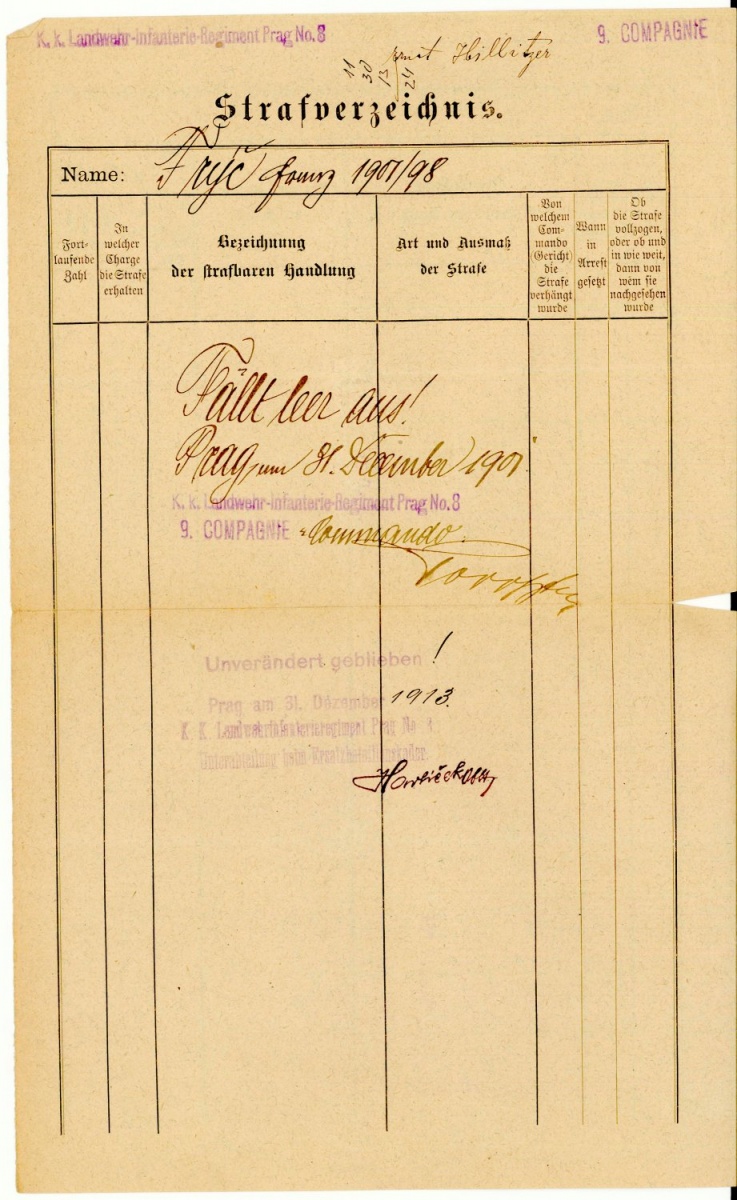 K. k. Landwehr-Infanterie-Regiment Prag No. 8
9. COMPAGNIE
Hillitzer
11
30
13
24
Strafverzeichnis.
Name: Fryč Franz 1901/98
Fort-
laufende
Zahl
In
welcher
Charge
die Strafe
erhalten
Bezeichnung
der strafbaren Handlung
Art und Ausmaß
der Strafe
Von
welchem
Com-
mando
(Gericht)
die
Strafe
verhängt
wurde
Wann
in
Arrest
gesetzt
Ob
die Strafe
vollzogen,
oder ob und
in wie weit,
dann von
wem sie
nachgesehen
wurde
Fällt leer aus!
Prag, am 31. December 1901
K. k. Landwehr-Infanterie-Regiment Prag No. 8
9. COMPAGNIE - Commando.
Unverändert geblieben!
Prag am 31. Dezember 1913.
K. K. Landwehrinfanterieregiment Prag No 8
Unterabteilung beim Ersatzbataillonskader.